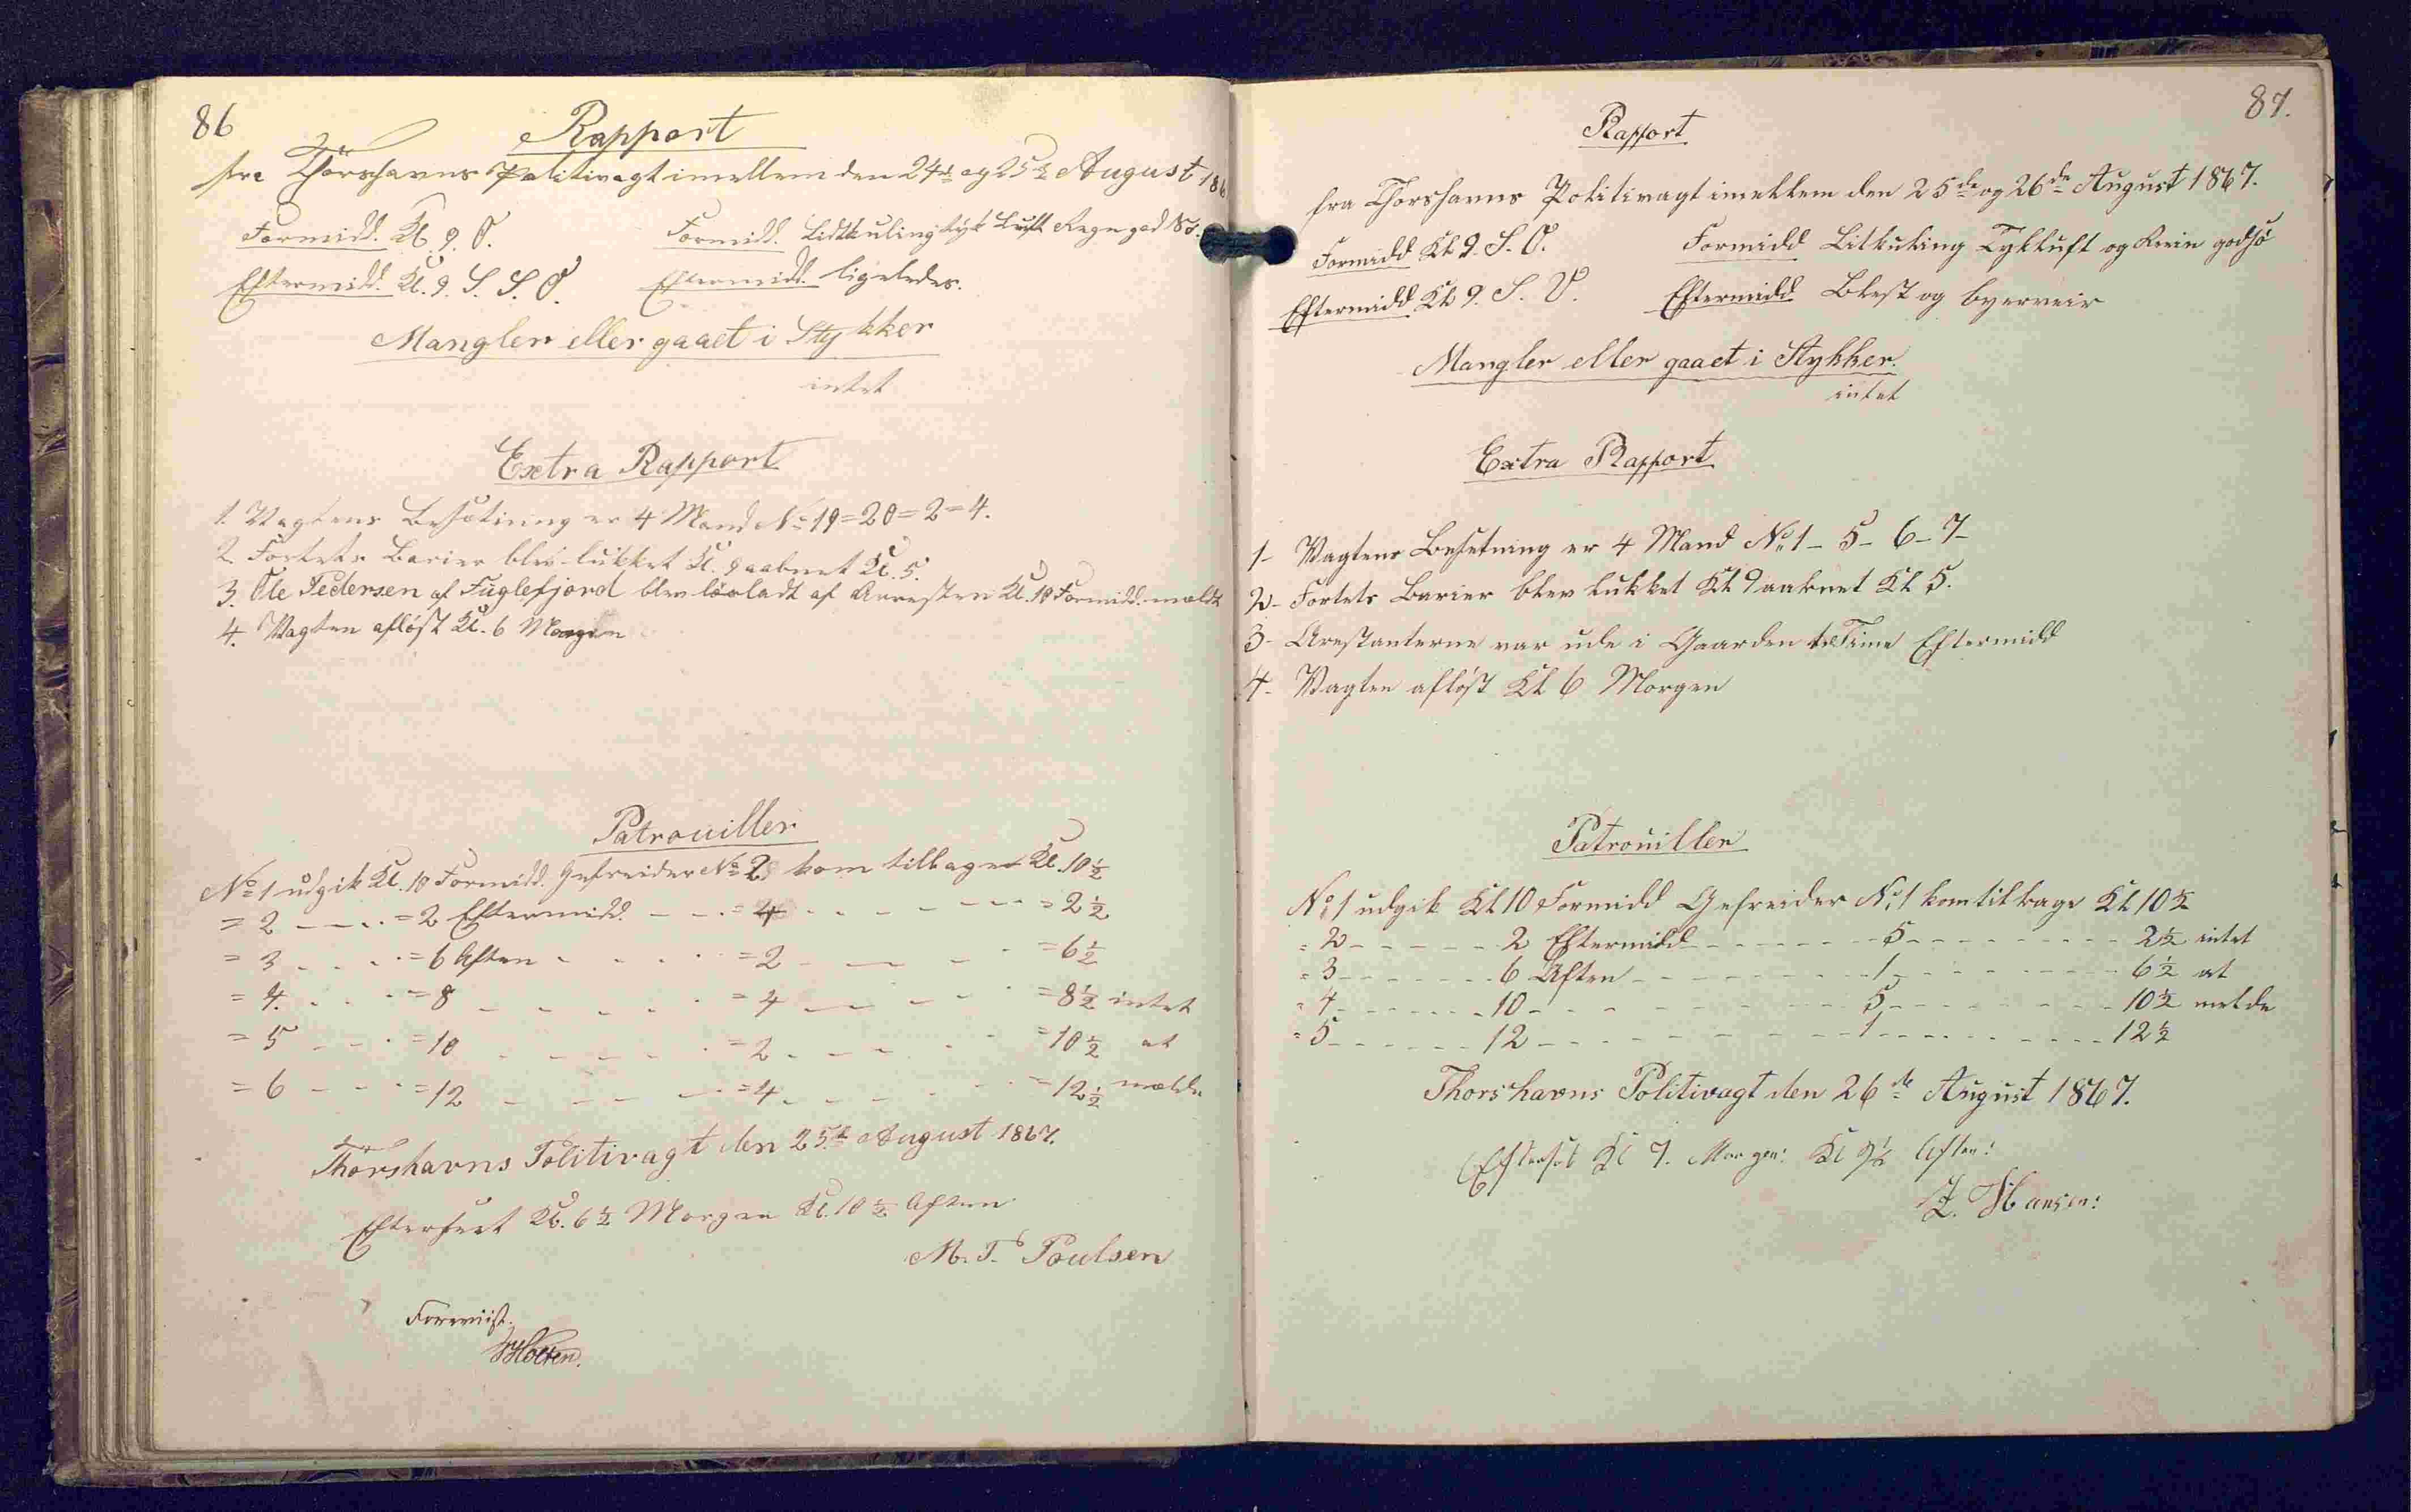 86
Rapport
fra Thorshavns Politivagt imellem den 24de og 25de August 186
Formidd. Kl. 9. O.
Formidd. Lidtkuling tyk Luft Regn god
Eftermidd. Kl. 9. S. S. O.
Eftermidd. ligeledes.
Mangler eller gaaet i Stykker
intet
Extra Rapport
1. Vagtens Besætning er 4 Mand No 19=20=2=4.
2. Fortets Barier blev lukket Kl. 9 aabnet Kl. 5.
3. Ole Pedersen af Fuglefjord blev løsladt af Arresten Kl. 10 Formidd. meldt
4. Vagten afløst Kl. 6 Morgen
Patrouiller
No 1 udgik Kl. 10 Formidd. Gefreider No 2 kom tilbage Kl. 10½
= 2 - - - = 2 Eftermidd. - - = 4 - - - - = 2½
= 3 - - - = 6 Aften - - - = 2 - - - - = 6½
= 4. - - - = 8 - - - - = 4 - - - - = 8½ intet
= 5 - - - = 10 - - - - = 2 - - - - = 10½ at
= 6 - - - = 12 - - - - = 4 - - - - = 12½ melde
Thorshavns Politivagt den 25de August 1867.
Efterseet Kl. 6½ Morgen Kl. 10½ Aften
M. T. Poulsen
Foreviist.
HHolten.
87.
Rapport
fra Thorshavns Politivagt imellem den 25de og 26de August 1867.
Formidd Kl 9. S. O.
Formidd Litkuling Tykluft og Rein godsø
Eftermidd Kl 9. S. V.
Eftermidd Blest og byerveir
Mangler eller gaaet i Stykker.
intet
Extra Rapport
1- Vagtens Besetning er 4 Mand No 1- 5- 6- 7-
2- Fortets Barier blev lukket Kl 9 aabnet Kl 5.
3- Arestanterne var ude i Gaarden Time Eftermidd
4- Vagten afløst Kl 6 Morgen
Patrouiller
No 1 udgik Kl 10 Formidd Gefreider No 1 kom tilbage Kl 10½
= 2 - - - - 2 Eftermidd - - - - 5 - - - - 2½ intet
= 3 - - - - 6 Aften - - - - 1 - - - - 6½ at
= 4 - - - - 10 - - - - 5 - - - - 10½ melde
= 5 - - - - 12 - - - - 1 - - - - 12½
Thorshavns Politivagt den 26de August 1867.
Efterset Kl 7. Morgen: Kl 9½ Aften:
Z. Hansen: